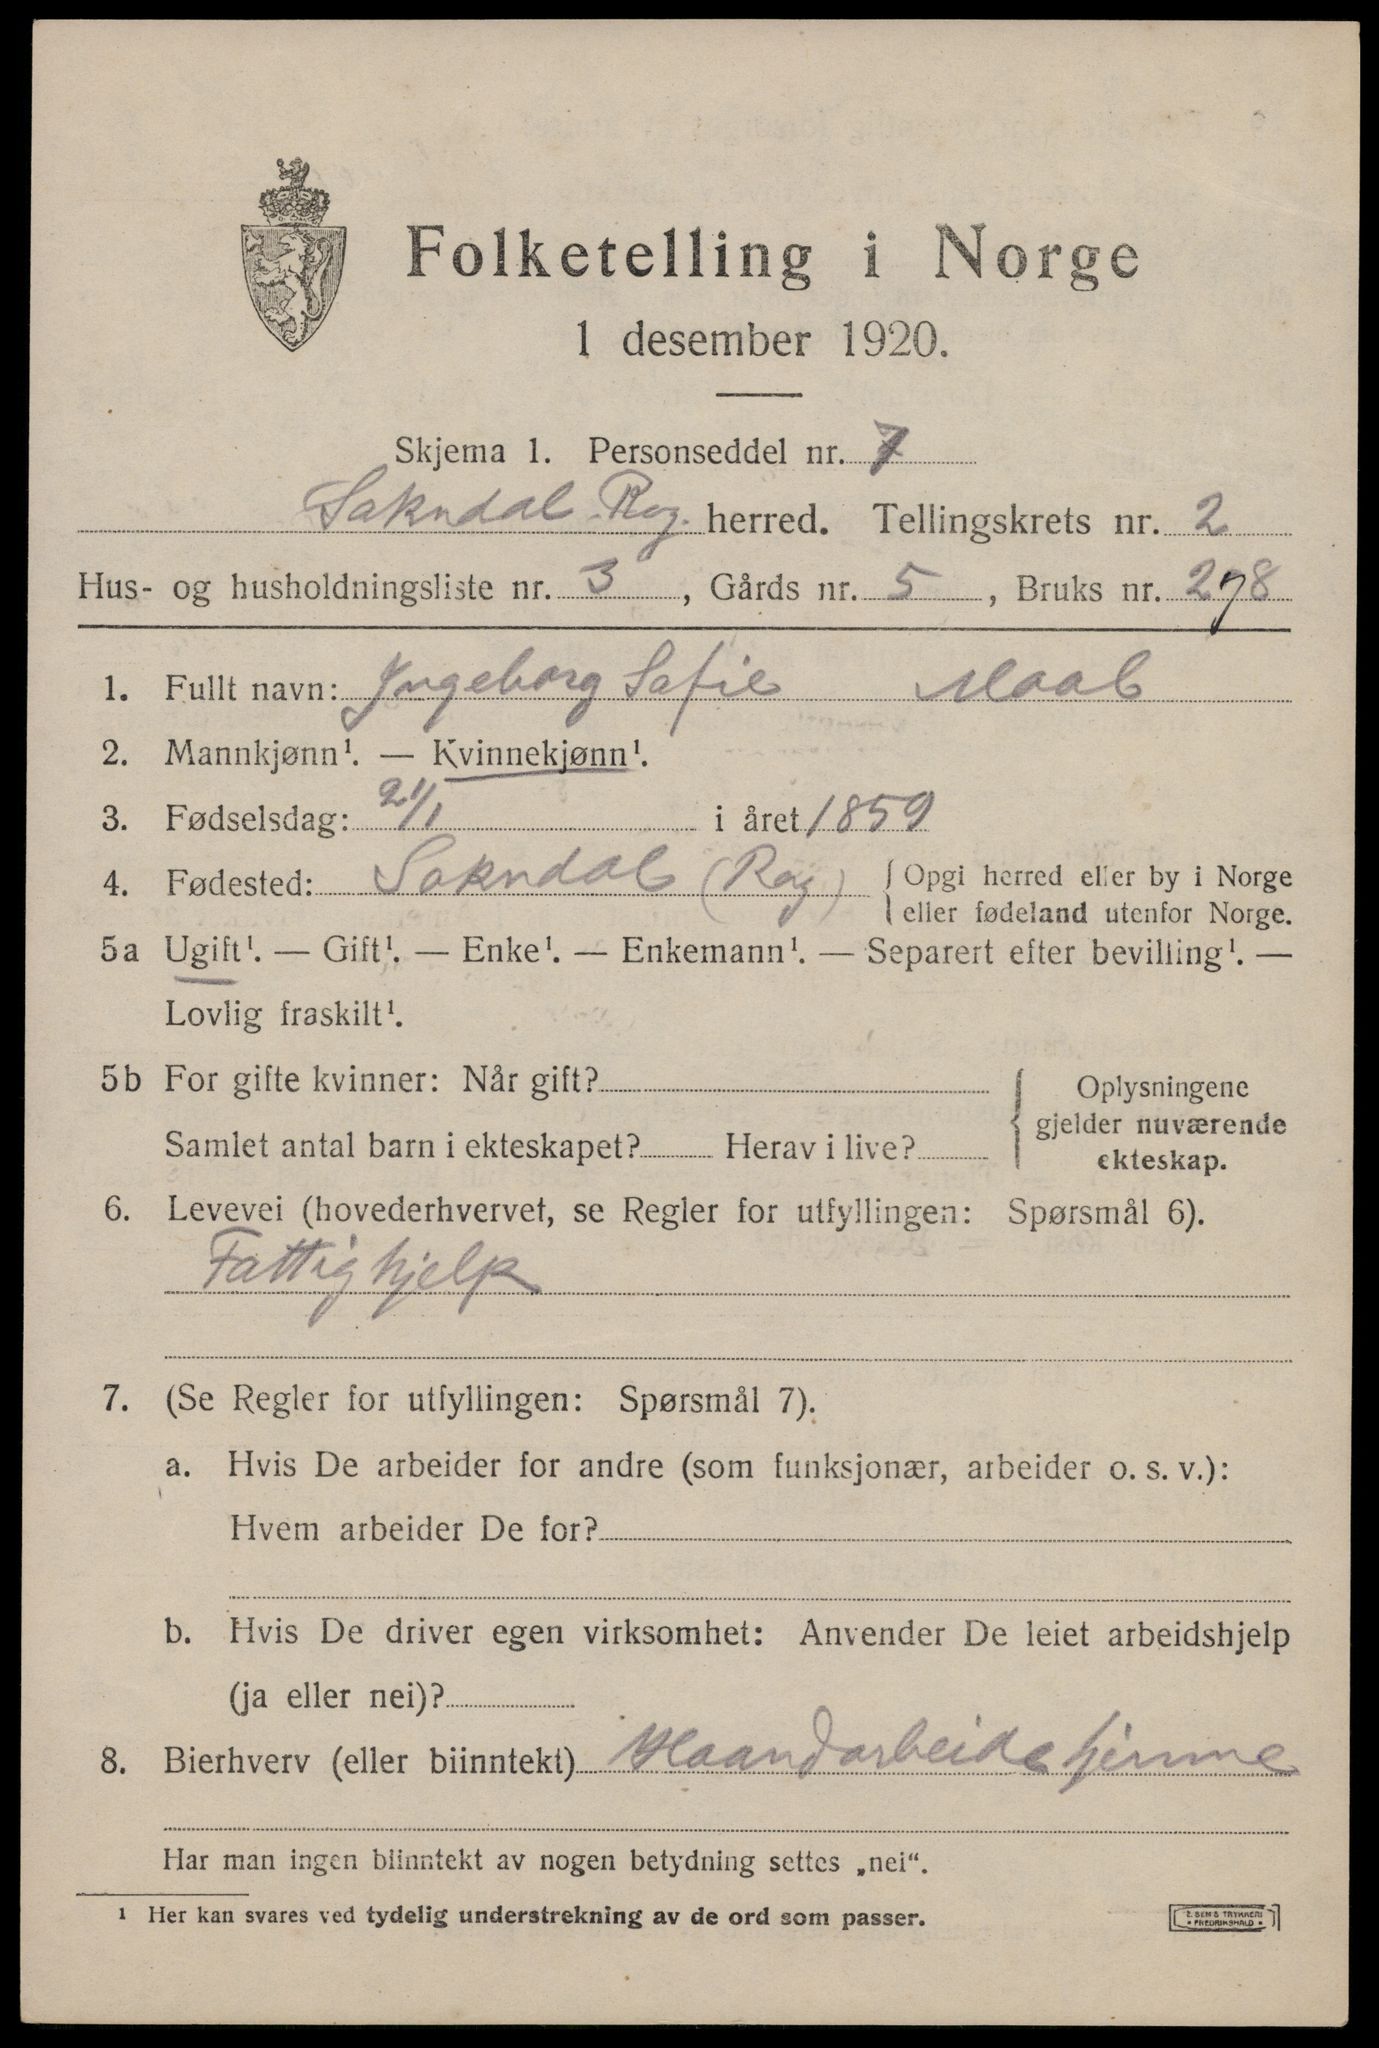 Folketelling i Norge
1 desember 1920.
Skjema 1. Personseddel nr. 7
Sokndal Rog. herred. Tellingskrets nr. 2
Hus- og husholdningsliste nr. 3, Gårds nr. 5, Bruks nr. 278
1. Fullt navn: Ingeborg Sofie
2. Mannkjønn¹. — Kvinnekjønn¹.
3. Fødselsdag: 21/1 i året 1859
4. Fødested: Sokndal (Rog) { Opgi herred eller by i Norge
eller fødeland utenfor Norge.
5a Ugift¹. — Gift¹. — Enke¹. — Enkemann¹. — Separert efter bevilling¹. —
Lovlig fraskilt¹.
5b For gifte kvinner: Når gift? { Oplysningene
gjelder nuværende
Samlet antal barn i ekteskapet? Herav i live?
ekteskap.
6. Levevei (hovederhvervet, se Regler for utfyllingen: Spørsmål 6).
Fattighjelp
7. (Se Regler for utfyllingen: Spørsmål 7).
a. Hvis De arbeider for andre (som funksjonær, arbeider o. s. v.):
Hvem arbeider De for?
b. Hvis De driver egen virksomhet: Anvender De leiet arbeidshjelp
(ja eller nei)?
8. Bierhverv (eller biinntekt) Haandarbeide hjemme
Har man ingen biinntekt av nogen betydning settes „nei“.
¹ Her kan svares ved tydelig understrekning av de ord som passer.
E. SEM'S TRYKKERI
FREDRIKSHALD